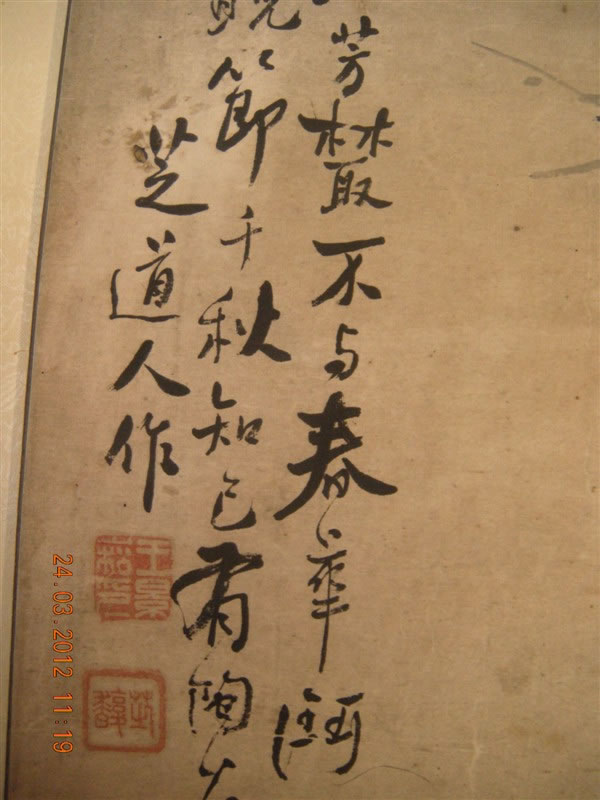 芳叢不与春華鬪
晚節千秋知己陶
芝道人作
24.03.2012 11:19